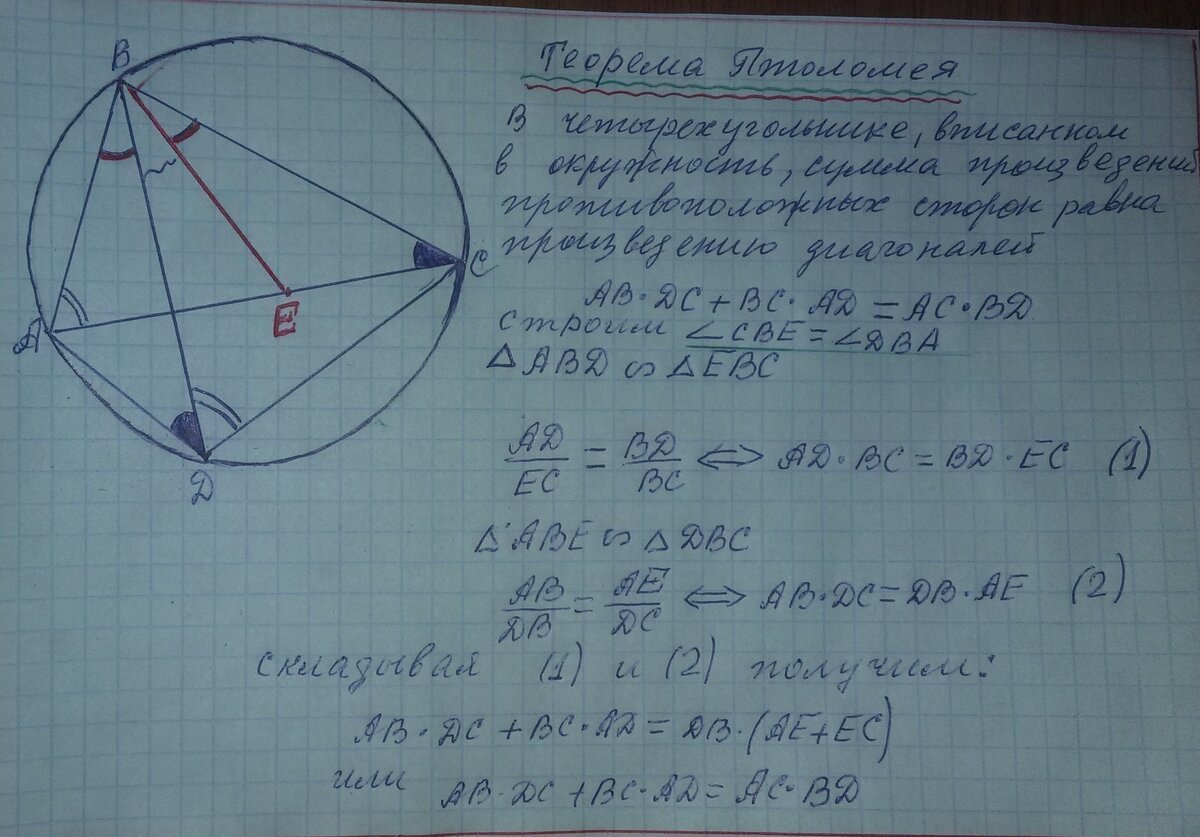 B
C
A
E
D
Теорема Птоломея
В четырехугольнике, вписанном
в окружность, сумма произведений
противоположных сторон равна
произведению диагоналей
AB·DC + BC·AD = AC·BD
строим ∠CBE = ∠DBA
△ABD ∽ △EBC
AD/EC = BD/BC ⟺ AD·BC = BD·EC (1)
△ABE ∽ △DBC
AB/DB = AE/DC ⟺ AB·DC = DB·AE (2)
складывая (1) и (2) получим:
AB·DC + BC·AD = DB·(AE+EC)
или AB·DC + BC·AD = AC·BD